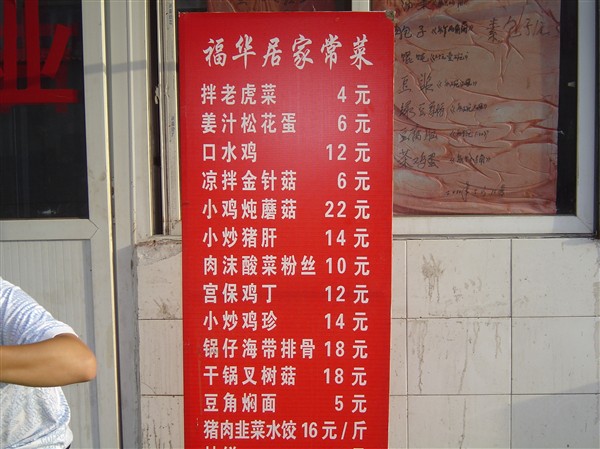 福华居家常菜
拌老虎菜 4元
姜汁松花蛋 6元
口水鸡 12元
凉拌金针菇 6元
小鸡炖蘑菇 22元
小炒猪肝 14元
肉沫酸菜粉丝 10元
宫保鸡丁 12元
小炒鸡珍 14元
锅仔海带排骨 18元
干锅叉树菇 18元
豆角焖面 5元
猪肉韭菜水饺 16元/斤
业
包子
素包
豆浆
豆腐脑
茶鸡蛋